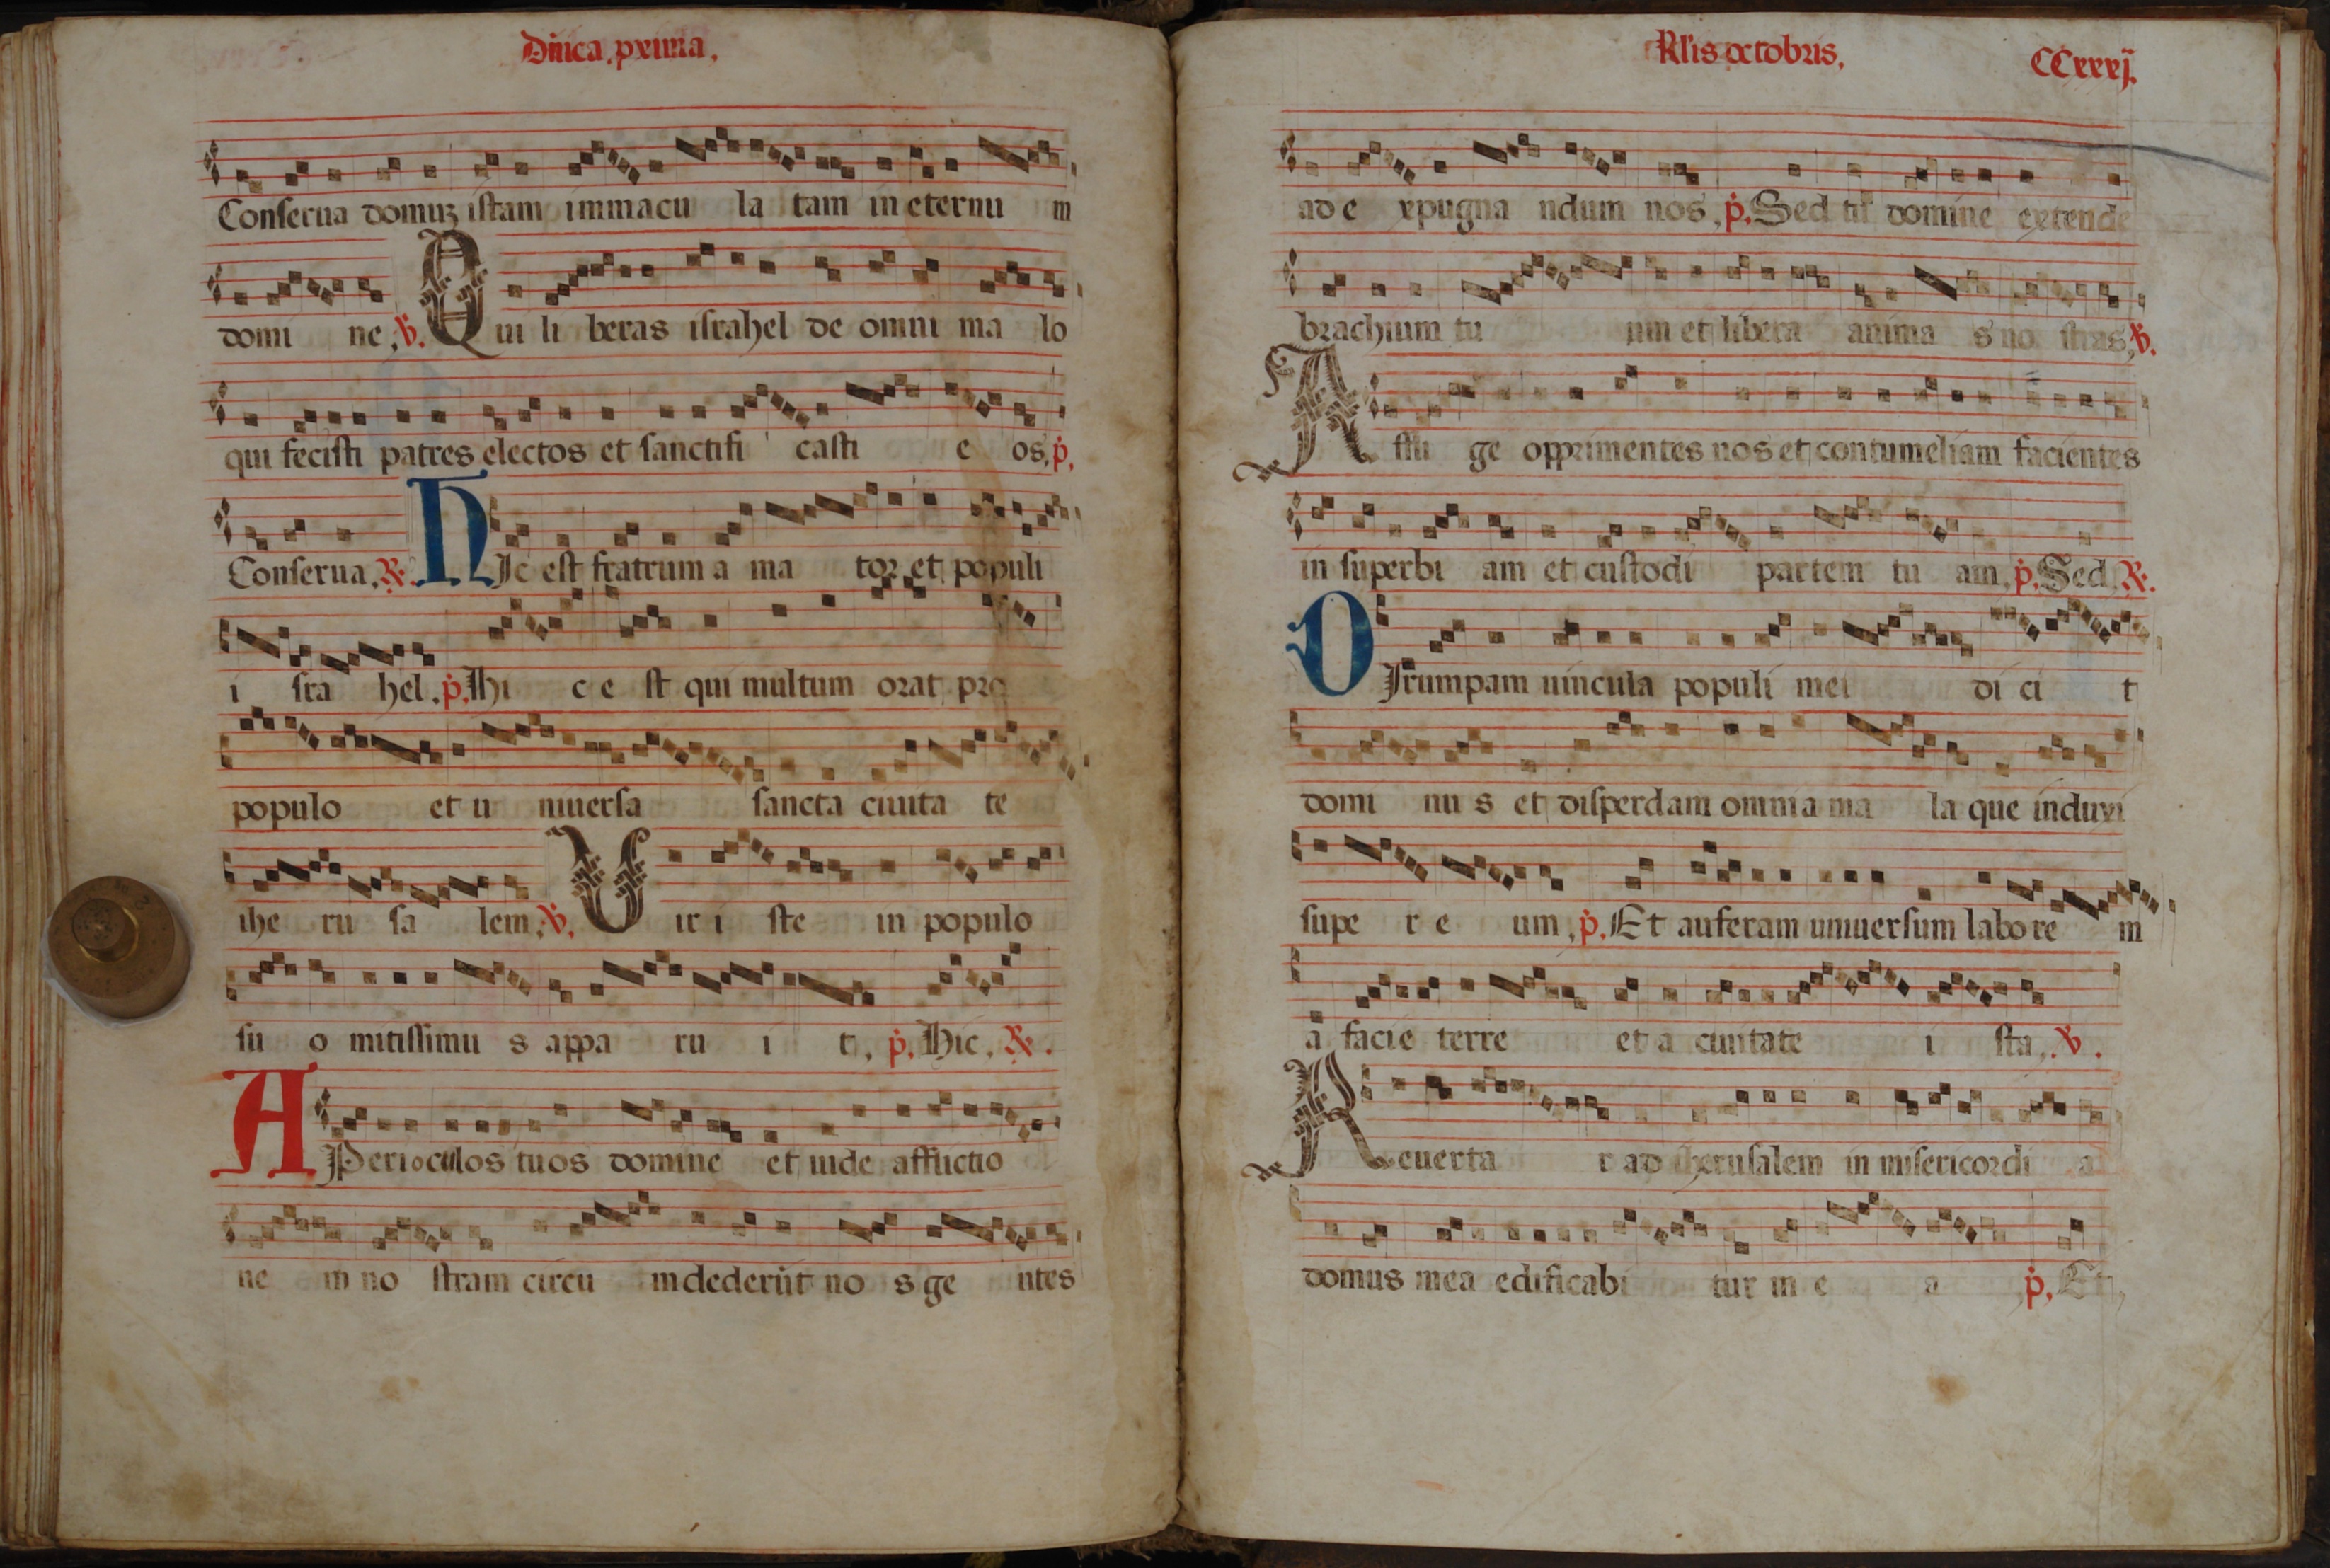 Dn̄ica. prima.
Conserua domuʒ istam immacu la tam in eternu m
domi ne. ℣. Qui li beras israhel de omni ma lo
qui fecisti patres electos et sanctifi casti e os. p̄.
Conserua. ℟. HIc est fratrum a ma tor et populi
i sra hel. p̄. Hi c e st qui multum orat pro
populo et u niuersa sancta ciuita te
ihe ru sa lem. ℣. Uir i ste in populo
su o mitissimu s appa ru i t. p̄. Hic. ℟.
APeri oculos tuos domine et uide afflictio
ne m no stram circu mdederūt no s ge ntes
Kl'is octobris. CCxxxj.
ad e xpugna ndum nos. p̄. Sed tu domine extende
brachium tu um et libera anima s no stras. ℣.
Affli ge opprimentes nos et contumeliam facientes
in superbi am et custodi partem tu am. p̄. Sed. ℟.
DIrumpam uincula populi mei di ci t
domi nu s et disperdam omnia ma la que induxi
supe r e um. p̄. Et auferam uniuersum labo re m
a facie terre et a ciuitate i sta. ℣.
Reuerta r ad iherusalem in misericordi a
domus mea edificabi tur in e a p̄. Et